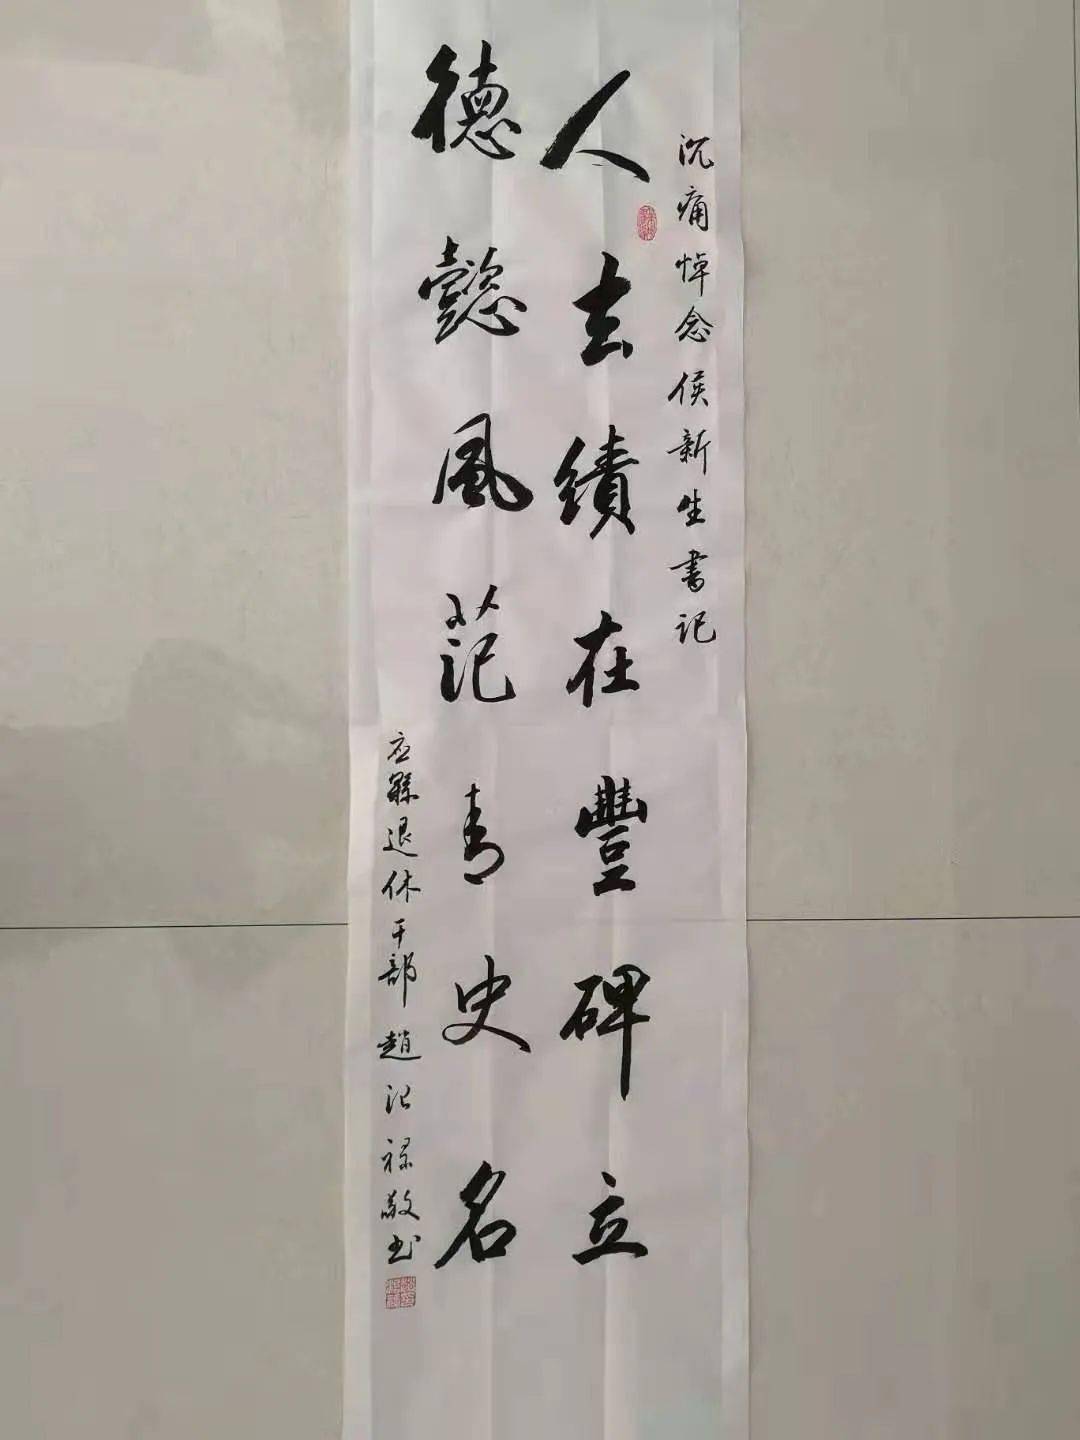 沉痛悼念侯新生書记
人去績在豐碑立
德懿風范青史名
应縣退休干部趙汜祿敬书